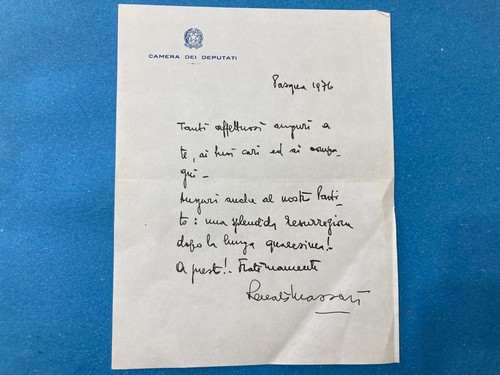 CAMERA DEI DEPUTATI
Pasqua 1976
Tanti affettuosi auguri a
te, ai tuoi cari ed ai compa-
gni-
Auguri anche al nostro Parti-
to: una splendida resurrezione
dopo la lunga quaresima!
A presto!- Fraternamente
Renato Massari